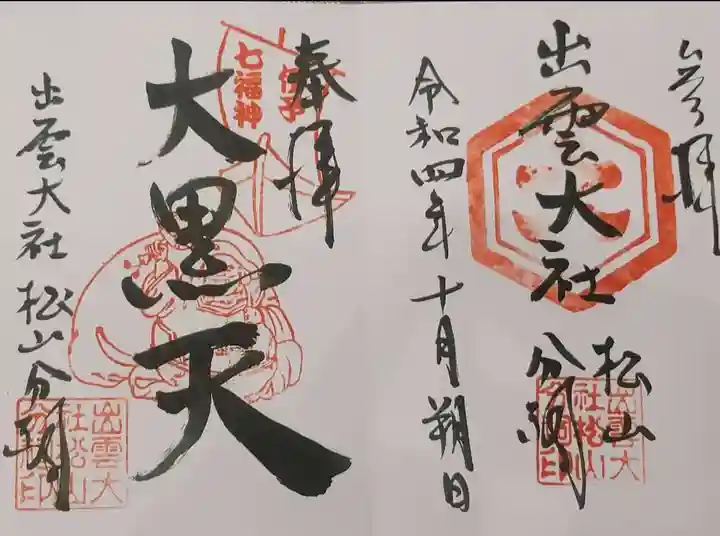 参拝
出雲大社
松山
分祠
令和四年十月朔日
出雲大社松山分祠印
奉拝
七福神
伊予
大黒天
出雲大社松山分祠
出雲大社松山分祠印